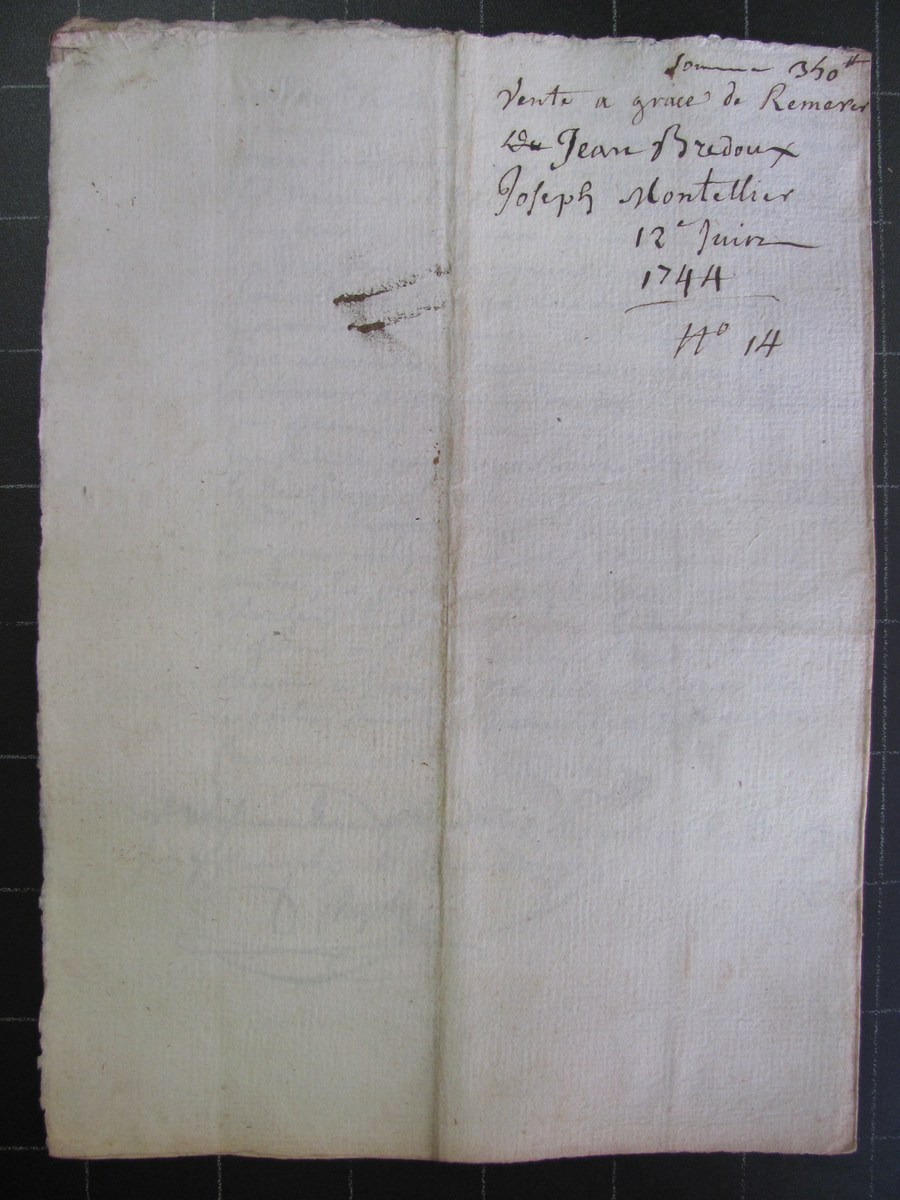 somme 350<sup>tt</sup>
Vente a grace de Remerer
Jean Bredoux
Joseph Montellier
12e Juin
1744
No 14